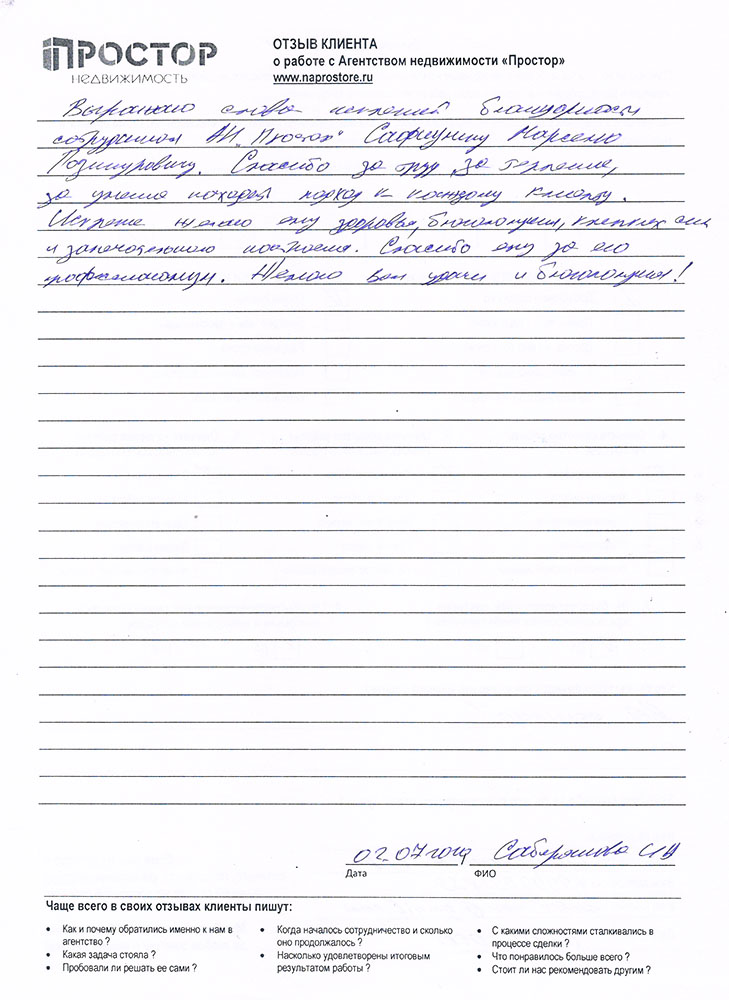 ПРОСТОР
НЕДВИЖИМОСТЬ
ОТЗЫВ КЛИЕНТА
о работе с Агентством недвижимости «Простор»
www.naprostore.ru
Выражаю слова искренней благодарности
сотрудникам АН "Простор"
Спасибо за труд, за терпение,
за умение находить подход к каждому клиенту.
Искренне желаю ему здоровья, благополучия, крепких сил
и замечательного настроения. Спасибо ему за его
профессионализм. Желаю Вам удачи и благополучия!
02.07 года
Дата
ФИО
Чаще всего в своих отзывах клиенты пишут:
• Как и почему обратились именно к нам в
агентство ?
• Какая задача стояла ?
• Пробовали ли решать ее сами ?
• Когда началось сотрудничество и сколько
оно продолжалось ?
• Насколько удовлетворены итоговым
результатом работы ?
• С какими сложностями сталкивались в
процессе сделки ?
• Что понравилось больше всего ?
• Стоит ли нас рекомендовать другим ?